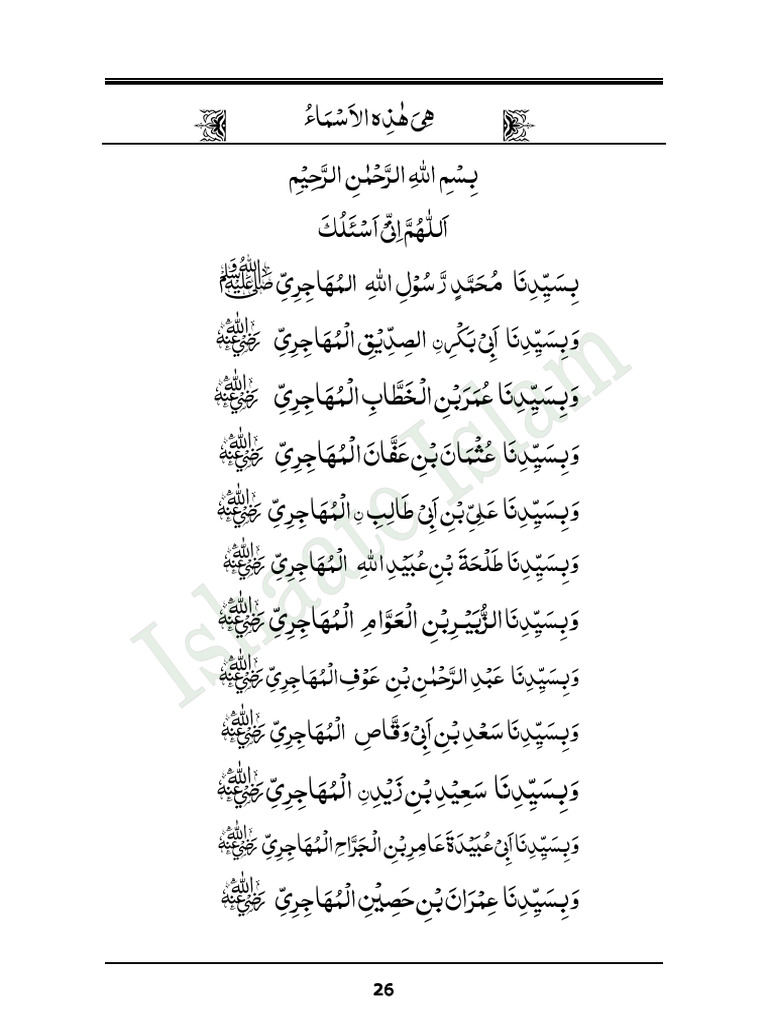 هِيَ هٰذِهِ الْاَسْمَاءُ
بِسْمِ اللهِ الرَّحْمٰنِ الرَّحِيْمِ
اَللّٰهُمَّ اِنِّىْ اَسْئَلُكَ
بِسَيِّدِنَا مُحَمَّدٍ رَّسُوْلِ اللهِ المُهَاجِرِىِّ ﷺ
وَبِسَيِّدِنَا اَبِىْ بَكْرِنِ الصِدِّيْقِ الْمُهَاجِرِىِّ رَضِيَ اللهُ عَنْهُ
وَبِسَيِّدِنَا عُمَرَبْنِ الْخَطَّابِ الْمُهَاجِرِىِّ رَضِيَ اللهُ عَنْهُ
وَبِسَيِّدِنَا عُثْمَانَ بْنِ عَفَّانَ الْمُهَاجِرِىِّ رَضِيَ اللهُ عَنْهُ
وَبِسَيِّدِنَا عَلِىِّ بْنِ اَبِىْ طَالِبِ نِ الْمُهَاجِرِىِّ رَضِيَ اللهُ عَنْهُ
وَبِسَيِّدِنَا طَلْحَةَ بْنِ عُبَيْدِ اللهِ الْمُهَاجِرِىِّ رَضِيَ اللهُ عَنْهُ
وَبِسَيِّدِنَا الزُّبَيْرِبْنِ الْعَوَّامِ الْمُهَاجِرِىِّ رَضِيَ اللهُ عَنْهُ
وَبِسَيِّدِنَا عَبْدِ الرَّحْمٰنِ بْنِ عَوْفِ الْمُهَاجِرِىِّ رَضِيَ اللهُ عَنْهُ
وَبِسَيِّدِنَا سَعْدِ بْنِ اَبِىْ وَقَّاصِ الْمُهَاجِرِىِّ رَضِيَ اللهُ عَنْهُ
وَبِسَيِّدِنَا سَعِيْدِ بْنِ زَيْدِنِ الْمُهَاجِرِىِّ رَضِيَ اللهُ عَنْهُ
وَبِسَيِّدِنَا اَبِىْ عُبَيْدَةَ عَامِرِبْنِ الْجَرَّاحِ الْمُهَاجِرِىِّ رَضِيَ اللهُ عَنْهُ
وَبِسَيِّدِنَا عِمْرَانَ بْنِ حَصِيْنِ الْمُهَاجِرِىِّ رَضِيَ اللهُ عَنْهُ
Ishaate Islam
26